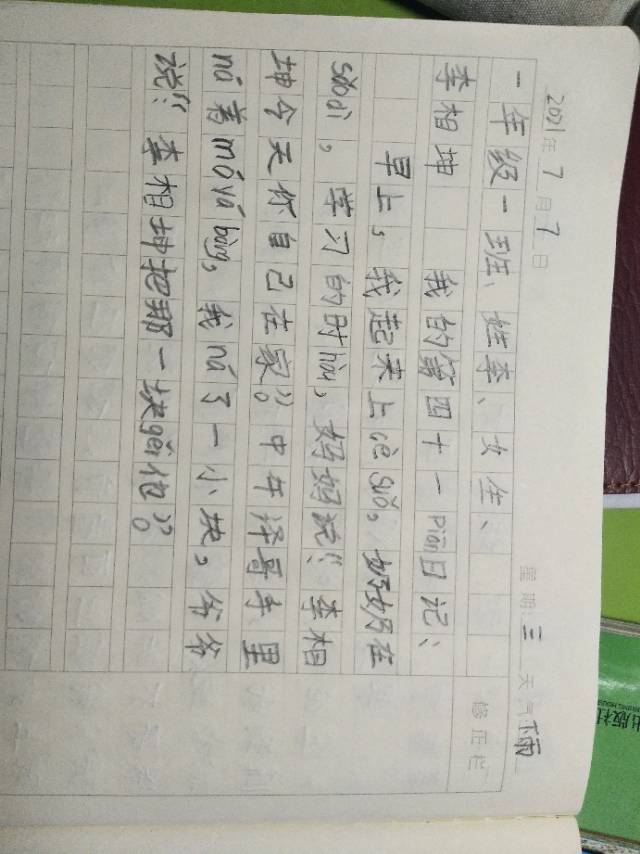 2021年7月7日 星期:三 天气:雨
修正栏
一年级一班、姓李、女生、
李相坤 我的第四十一piān日记:
早上,我起来上cè suǒ。妈妈在
sǎo dì,学习的时hou,妈妈说:“李相
坤今天你自己在家”。中午泽哥手里
ná着mó yá bàng,我ná了一小块。爷爷
说:“李相坤把那一块gěi他”。
出版社